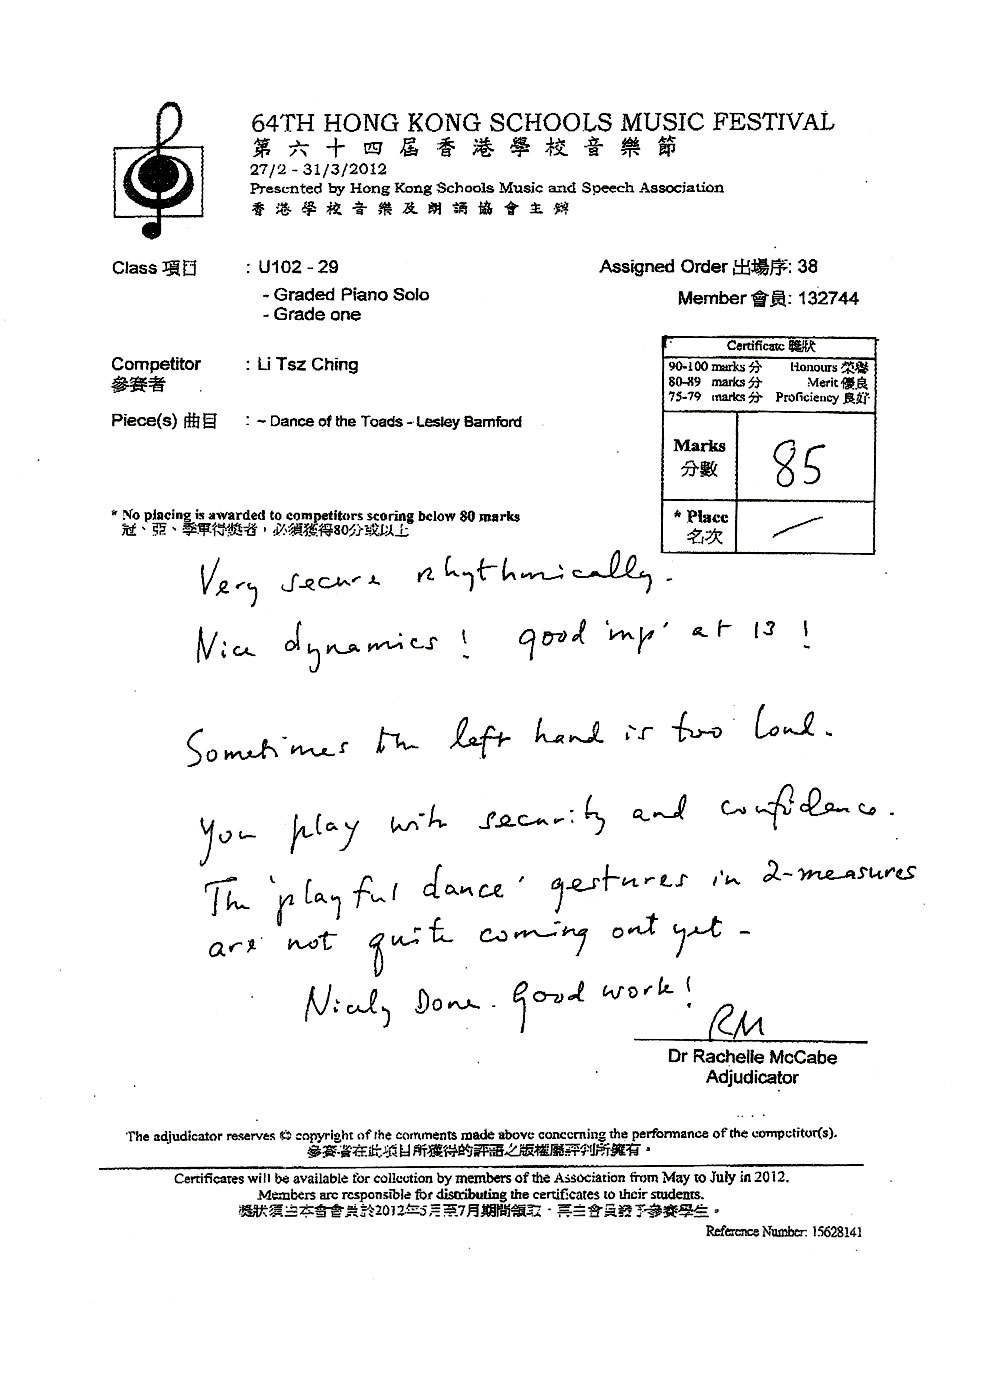 64TH HONG KONG SCHOOLS MUSIC FESTIVAL
第六十四屆香港學校音樂節
27/2 - 31/3/2012
Presented by Hong Kong Schools Music and Speech Association
香港學校音樂及朗誦協會主辦
Class 項目 : U102 - 29 Assigned Order 出場序: 38
- Graded Piano Solo Member 會員: 132744
- Grade one
Certificate 獎狀
90-100 marks 分 Honours 榮譽
80-89 marks 分 Merit 優良
75-79 marks 分 Proficiency 良好
Competitor : Li Tsz Ching
參賽者
Piece(s) 曲目 : ~ Dance of the Toads - Lesley Bamford
Marks 85
分數
* No placing is awarded to competitors scoring below 80 marks
冠、亞、季軍得獎者，必須獲得80分或以上
* Place /
名次
Very secure rhythmically.
Nice dynamics! good 'mp' at 13!
Sometimes the left hand is too loud.
You play with security and confidence.
The 'playful dance' gestures in 2-measures
are not quite coming out yet -
Nicely Done. Good work!
RM
Dr Rachelle McCabe
Adjudicator
The adjudicator reserves © copyright of the comments made above concerning the performance of the competitor(s).
參賽者在此項目所獲得的評語之版權屬評判所擁有。
Certificates will be available for collection by members of the Association from May to July in 2012.
Members are responsible for distributing the certificates to their students.
獎狀須由本會會員於2012年5月至7月期間領取，再由會員發予參賽學生。
Reference Number: 15628141